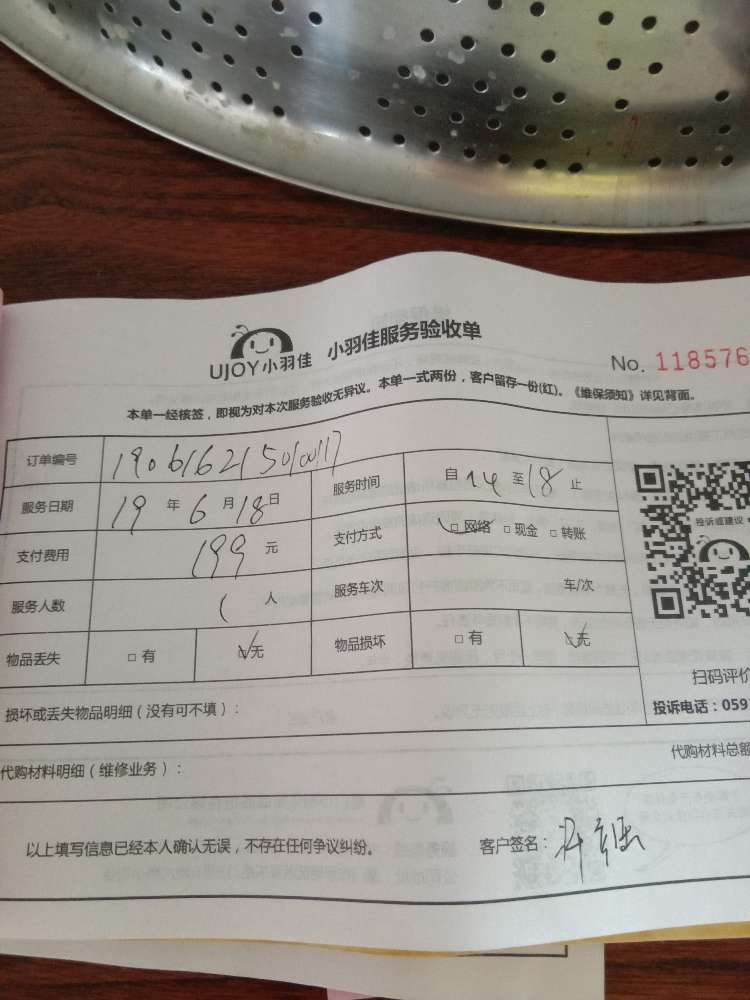 UJOY小羽佳 小羽佳服务验收单
No. 118576
本单一经核签，即视为对本次服务验收无异议。本单一式两份，客户留存一份(红)。《维保须知》详见背面。
订单编号 190616215010017
服务日期 19 年 6 月 18 日 服务时间 自 14 至 18 止
支付费用 199 元 支付方式 □ 网络 □ 现金 □ 转账
服务人数 1 人 服务车次 车/次
物品丢失 □ 有 □ 无 物品损坏 □ 有 □ 无
投诉或建议
扫码评价
投诉电话：059
损坏或丢失物品明细（没有可不填）：
代购材料明细（维修业务）： 代购材料总额
以上填写信息已经本人确认无误，不存在任何争议纠纷。 客户签名：